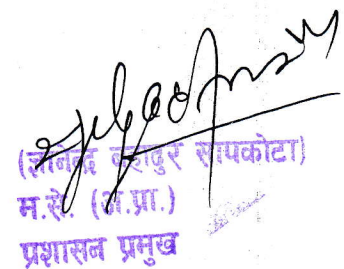 (ज्ञानेन्द्र बहादुर सापकोटा)
म.से. (अ.प्रा.)
प्रशासन प्रमुख